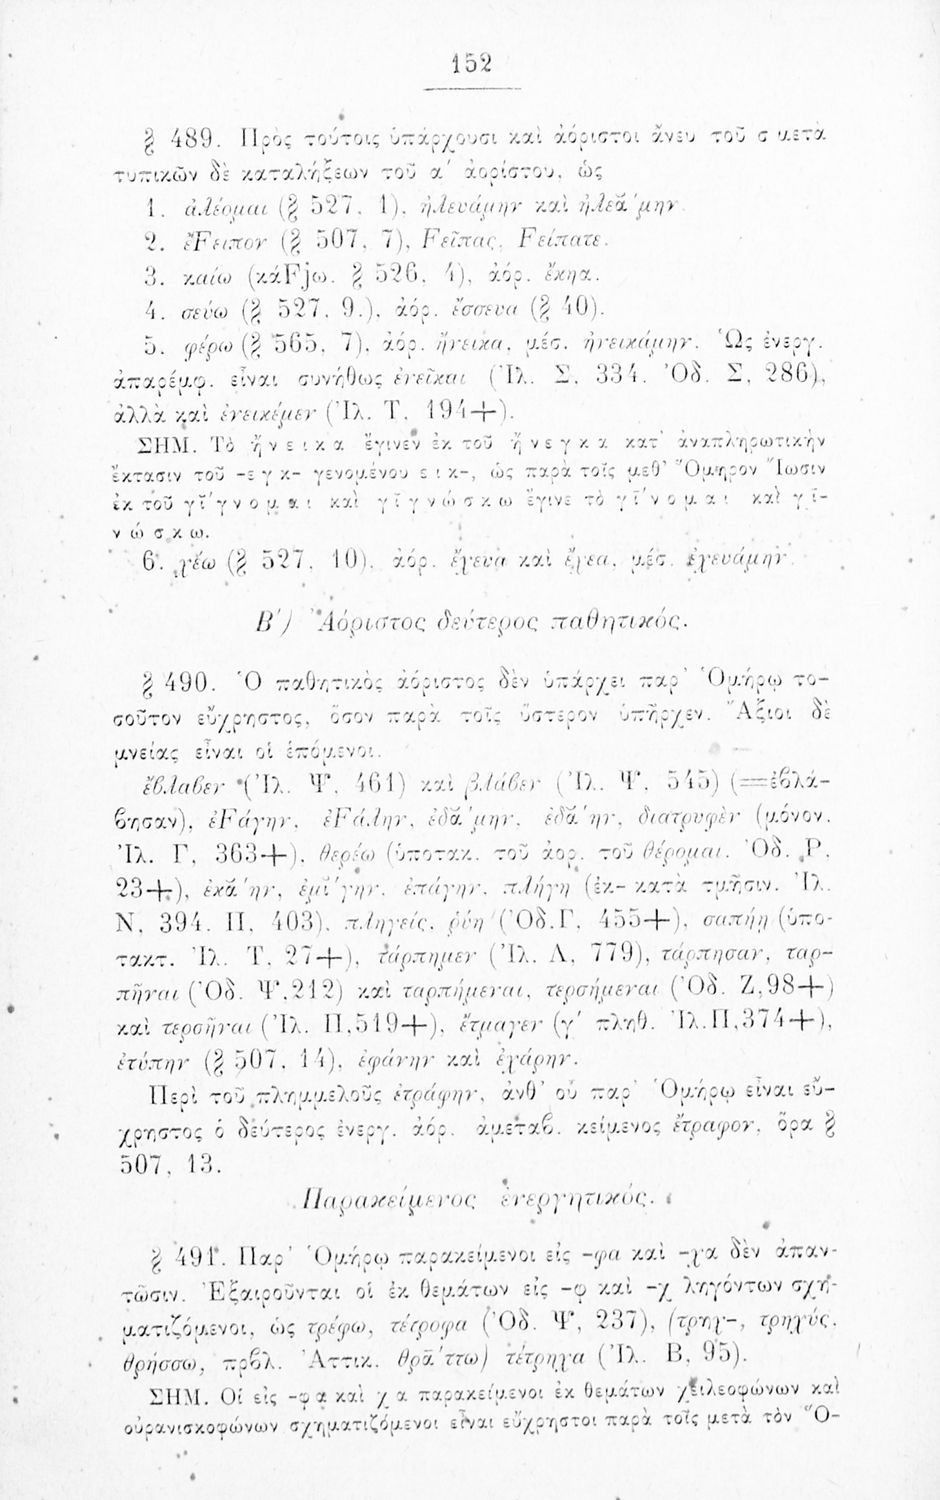 152
§ 489. Πρὸς τούτοις ὑπάρχουσι καὶ ἀόριστοι ἄνευ τοῦ σ μετὰ
τυπικῶν δὲ καταλήξεων τοῦ α΄ ἀορίστου, ὡς
1. ἀλέομαι (§ 527, 1), ἠλευάμην καὶ ἠλεᾰ́μην.
2. ἔFειπον (§ 507, 7), Fεῖπας, Fείπατε.
3. καίω (κάFjω. § 526, 4), ἀόρ. ἔκηα.
4. σεύω (§ 527, 9.), ἀόρ. ἔσσευα (§ 40).
5. φέρω (§ 565, 7), ἀόρ. ἤνεικα, μέσ. ἠνεικάμην. Ὡς ἐνεργ.
ἀπαρέμφ. εἶναι συνήθως ἐνεῖκαι (Ἰλ. Σ, 334. Ὀδ. Σ, 286),
ἀλλὰ καὶ ἐνεικέμεν (Ἰλ. Τ, 194+).
ΣΗΜ. Τὸ ἤνεικα ἔγινεν ἐκ τοῦ ἤνεγκα κατ᾽ ἀναπληρωτικὴν
ἔκτασιν τοῦ -εγκ- γενομένου εικ-, ὡς παρὰ τοῖς μεθ᾽ Ὅμηρον Ἴωσιν
ἐκ τοῦ γῐ́γνομαι καὶ γῐγνώσκω ἔγινε τὸ γῑ́νομαι καὶ γῑ-
νώσκω.
6. χέω (§ 527, 10), ἀόρ. ἔχευα καὶ ἔχεα, μέσ. ἐχευάμην.
Β΄) Ἀόριστος δεύτερος παθητικός.
§ 490. Ὁ παθητικὸς ἀόριστος δὲν ὑπάρχει παρ᾽ Ὁμήρῳ το-
σοῦτον εὔχρηστος, ὅσον παρὰ τοῖς ὕστερον ὑπῆρχεν. Ἄξιοι δὲ
μνείας εἶναι οἱ ἑπόμενοι.
ἔβλαβεν (Ἰλ. Ψ, 461) καὶ βλάβεν (Ἰλ. Ψ, 545) (=ἐβλά-
βησαν), ἐFάγην, ἐFάλην, ἐδᾰ́μην, ἐδᾰ́ην, διατρυφὲν (μόνον.
Ἰλ. Γ, 363+), θερέω (ὑποτακ. τοῦ ἀορ. τοῦ θέρομαι. Ὀδ. Ρ,
23+), ἐκᾰ́ην, ἐμῐ́γην, ἐπάγην, πλήγη (ἐκ- κατὰ τμῆσιν. Ἰλ.
Ν, 394. Π, 403), πληγείς, ῥύη (Ὀδ.Γ, 455+), σαπήῃ (ὑπο-
τακτ. Ἰλ. Τ, 27+), τάρπημεν (Ἰλ. Λ, 779), τάρπησαν, ταρ-
πῆναι (Ὀδ. Ψ,212) καὶ ταρπήμεναι, τερσήμεναι (Ὀδ. Ζ,98+)
καὶ τερσῆναι (Ἰλ. Π,519+), ἔτμαγεν (γ΄ πληθ. Ἰλ.Π,374+),
ἐτύπην (§ 507, 14), ἐφάνην καὶ ἐχάρην.
Περὶ τοῦ πλημμελοῦς ἐτράφην, ἀνθ᾽ οὗ παρ᾽ Ὁμήρῳ εἶναι εὔ-
χρηστος ὁ δεύτερος ἐνεργ. ἀόρ. ἀμεταβ. κείμενος ἔτραφον, ὅρα §
507, 13.
Παρακείμενος ἐνεργητικός.
§ 491. Παρ᾽ Ὁμήρῳ παρακείμενοι εἰς -φα καὶ -χα δὲν ἀπαν-
τῶσιν. Ἐξαιροῦνται οἱ ἐκ θεμάτων εἰς -φ καὶ -χ ληγόντων σχη-
ματιζόμενοι, ὡς τρέφω, τέτροφα (Ὀδ. Ψ, 237), (τρηχ-, τρηχύς,
θρήσσω, πρβλ. Ἀττικ. θρᾱ́ττω) τέτρηχα (Ἰλ. Β, 95).
ΣΗΜ. Οἱ εἰς -φα καὶ χα παρακείμενοι ἐκ θεμάτων χειλεοφώνων καὶ
οὐρανισκοφώνων σχηματιζόμενοι εἶναι εὔχρηστοι παρὰ τοῖς μετὰ τὸν Ὅ-